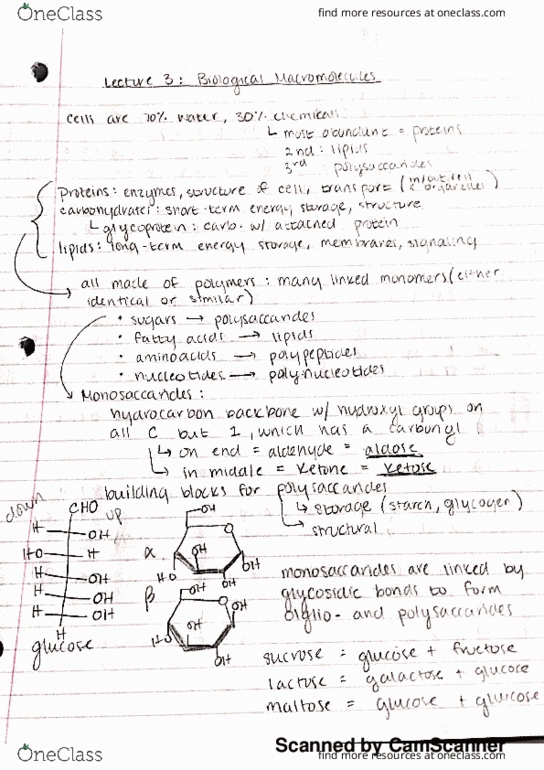 OneClass
find more resources at oneclass.com
Lecture 3: Biological Macromolecules
cells are 70% water, 30% chemicals
most abundant = proteins
2nd: lipids
3rd polysaccarides
proteins: enzymes, structure of cell, transport (in/out cell & organelles)
carbohydrates: short-term energy storage, structure
glycoprotein: carb. w/ attached protein
lipids: long-term energy storage, membranes, signaling
all made of polymers: many linked monomers (either
identical or similar)
• sugars → polysaccarides
• fatty acids → lipids
• aminoacids → polypeptides
• nucleotides → polynucleotides
Monosaccarides:
hydrocarbon backbone w/ hydroxyl groups on
all C but 1, which has a carbonyl
on end = aldehyde = aldose
in middle = ketone = ketose
building blocks for polysaccarides
storage (starch, glycogen)
structural
down
up
CHO
H OH
HO H
H OH
H OH
H OH
H
glucose
α
OH
O
OH
HO
OH
OH
β
OH
O
OH
OH
HO
OH
monosaccarides are linked by
glycosidic bonds to form
oliglio- and polysaccarides
sucrose = glucose + fructose
lactose = galactose + glucose
maltose = glucose + glucose
Scanned by CamScanner
OneClass
find more resources at oneclass.com